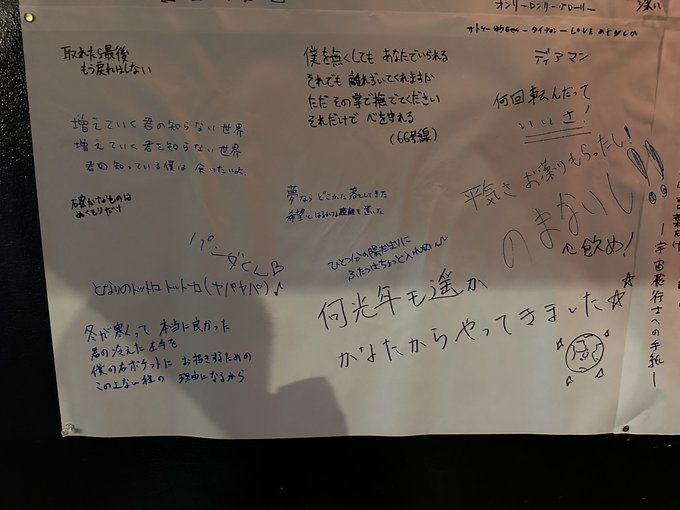 オンリーロンリーグローリー
取れたら最後
もう戻れはしない
増えていく君の知らない世界
増えていく君を知らない世界
君の知っている僕は 会いたいよ
確かなものは
ぬくもりだけ
となりのトットロ トットーロ(ヤバヤバ)♪
冬が寒くって 本当に良かった
君の冷えた左手を
僕の右ポケットに お招きするための
この上ない程の 理由になるから
僕を無くしても あなたでいられる
それでも 離れずいてくれますか
ただ その掌で撫でてください
それだけで 全てを守れる
(66号線)
夢なら どこかに落としてきた
ひとつ分の陽だまりに
ふたつはちょっと入れない♪
何光年も遥か
かなたからやってきました☆
ディアマン
何回転んだって
いいさ!
平気さ お薬もらったし!
のまないし
飲め!
宇宙飛行士への手紙